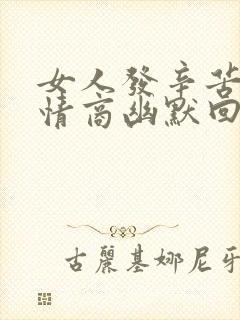 女人發辛苦
情商幽默回
古麗基娜尼牙